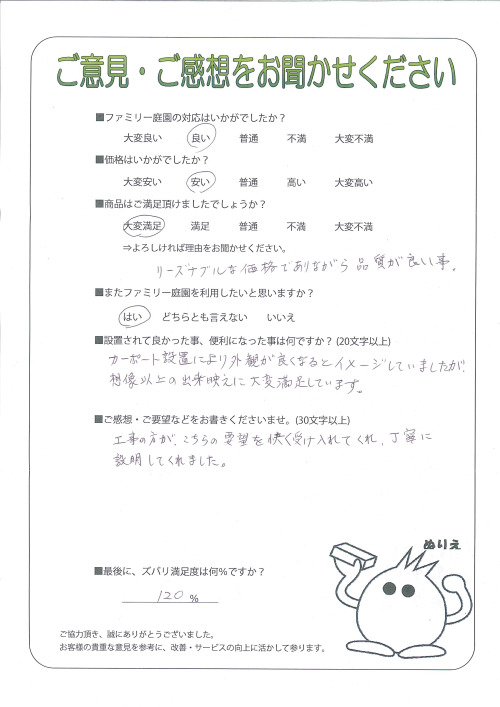 ご意見・ご感想をお聞かせください
■ファミリー庭園の対応はいかがでしたか？
大変良い 良い 普通 不満 大変不満
■価格はいかがでしたか？
大変安い 安い 普通 高い 大変高い
■商品はご満足頂けましたでしょうか？
大変満足 満足 普通 不満 大変不満
⇒よろしければ理由をお聞かせください。
リーズナブルな価格でありながら品質が良い事。
■またファミリー庭園を利用したいと思いますか？
はい どちらとも言えない いいえ
■設置されて良かった事、便利になった事は何ですか？(20文字以上)
カーポート設置により外観が良くなるとイメージしていましたが、
想像以上の出来映えに大変満足しています。
■ご感想・ご要望などをお書きくださいませ。(30文字以上)
工事の方が、こちらの要望を快く受け入れてくれ、丁寧に
説明してくれました。
ぬりえ
■最後に、ズバリ満足度は何%ですか？
120 %
ご協力頂き、誠にありがとうございました。
お客様の貴重な意見を参考に、改善・サービスの向上に活かして参ります。